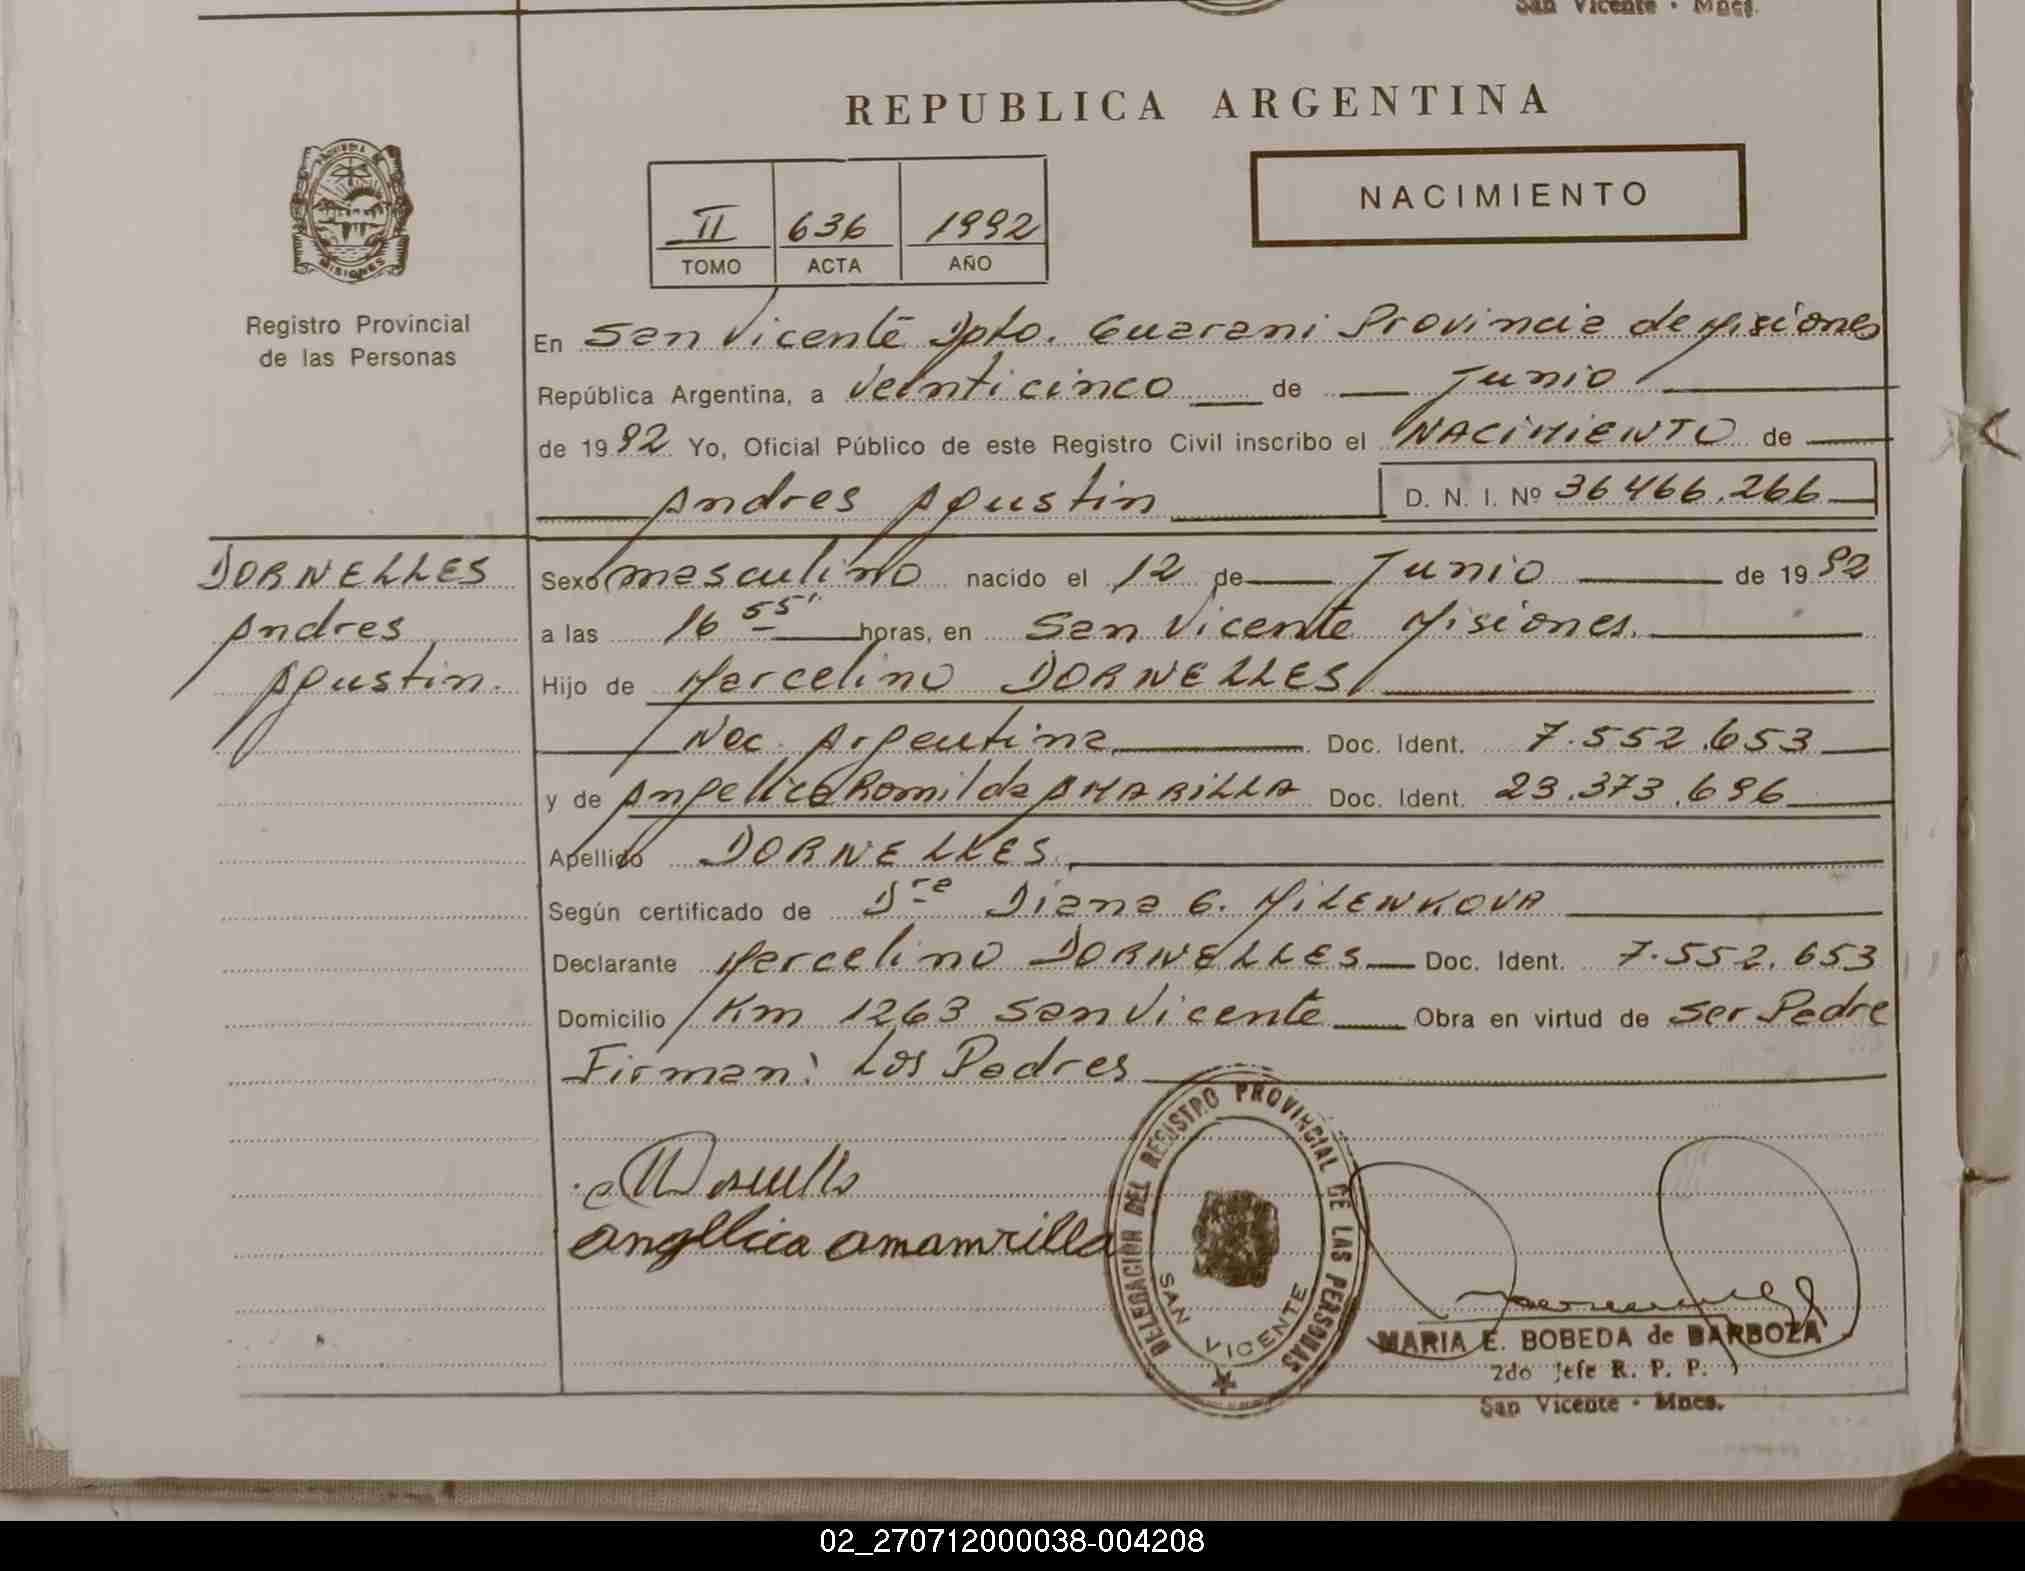 San Vicente - Mnes.
REPUBLICA ARGENTINA
NACIMIENTO
II 636 1992
TOMO ACTA AÑO
MISIONES
Registro Provincial
de las Personas
En San Vicente Dpto. Guarani Provincia de Misiones
República Argentina, a veinticinco de Junio
de 1992 Yo, Oficial Público de este Registro Civil inscribo el NACIMIENTO de
Andres Agustin D. N. I. Nº 36466.266
DORNELLES
Andres
Agustin.
Sexo masculino nacido el 12 de Junio de 1992
a las 16 55' horas, en San Vicente Misiones.
Hijo de Marcelino DORNELLES
Nac. Argentina Doc. Ident. 7.552.653
y de Angelica Romilda AMARILLA Doc. Ident. 23.373.696
Apellido DORNELLES
Según certificado de Dra Diana G. MILENKOVA
Declarante Marcelino DORNELLES Doc. Ident. 7.552.653
Domicilio Km 1263 San Vicente Obra en virtud de Ser Padre
Firman: Los Padres
angellica amamrilla
DELEGACION DEL REGISTRO PROVINCIAL DE LAS PERSONAS
SAN VICENTE
MARIA E. BOBEDA de BARBOZA
2do Jefe R. P. P.
San Vicente - Mnes.
02_270712000038-004208